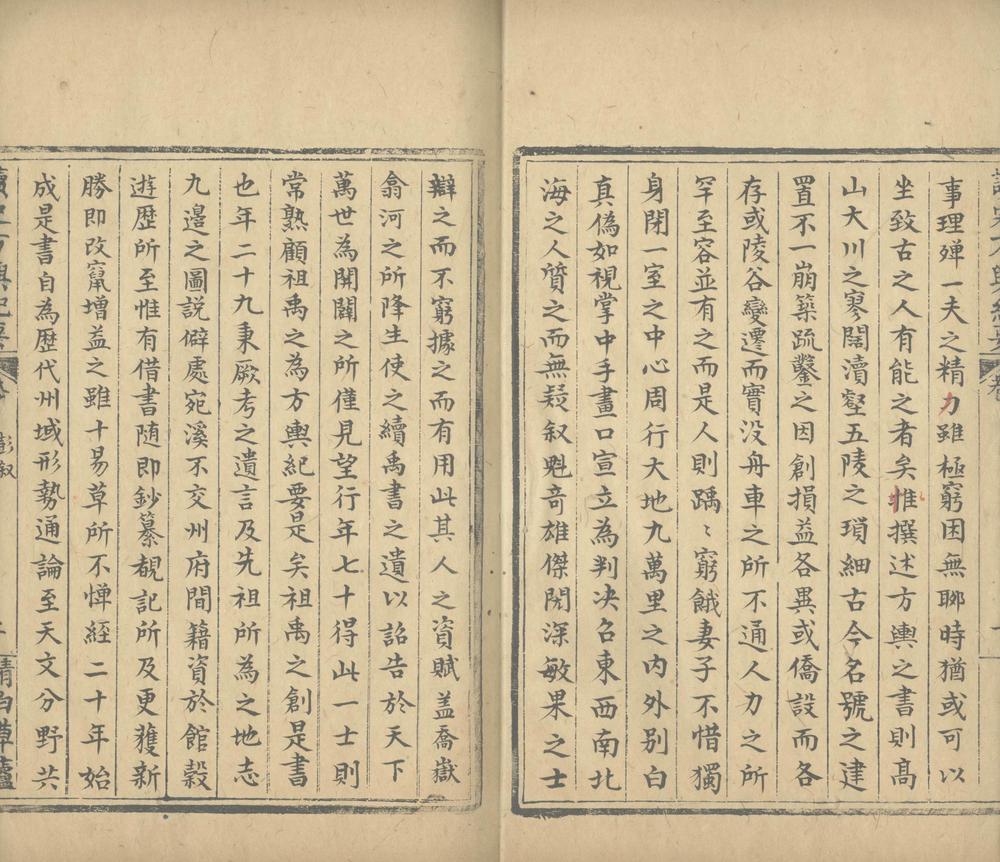 事理殫一夫之精力雖極窮困無聊時猶或可以
坐致古之人有能之者矣惟撰述方輿之書則髙
山大川之寥闊瀆壑五陵之瑣細古今名號之建
置不一崩築疏鑿之因創損益各異或僑設而各
存或陵谷變遷而實没舟車之所不通人力之所
罕至容並有之而是人則踽〻窮餓妻子不惜獨
身閉一室之中心周行大地九萬里之内外别白
真偽如視掌中手畫口宣立為判决召東西南北
海之人質之而無疑叙魁竒雄傑閎深敏果之士
辯之而不窮據之而有用此其人之資賦盖喬嶽
翕河之所降生使之續禹書之遺以詔告於天下
萬世為開闢之所僅見望行年七十得此一士則
常熟顧祖禹之為方輿紀要是矣祖禹之創是書
也年二十九秉厥考之遺言及先祖所為之地志
九邊之圖説僻處宛溪不交州府間籍資於館糓
遊歴所至惟有借書随即鈔纂覩記所及更獲新
勝即改竄增益之雖十易草所不憚經二十年始
成是書自為歴代州域形勢通論至天文分野共
讀史方輿紀要 彭叙